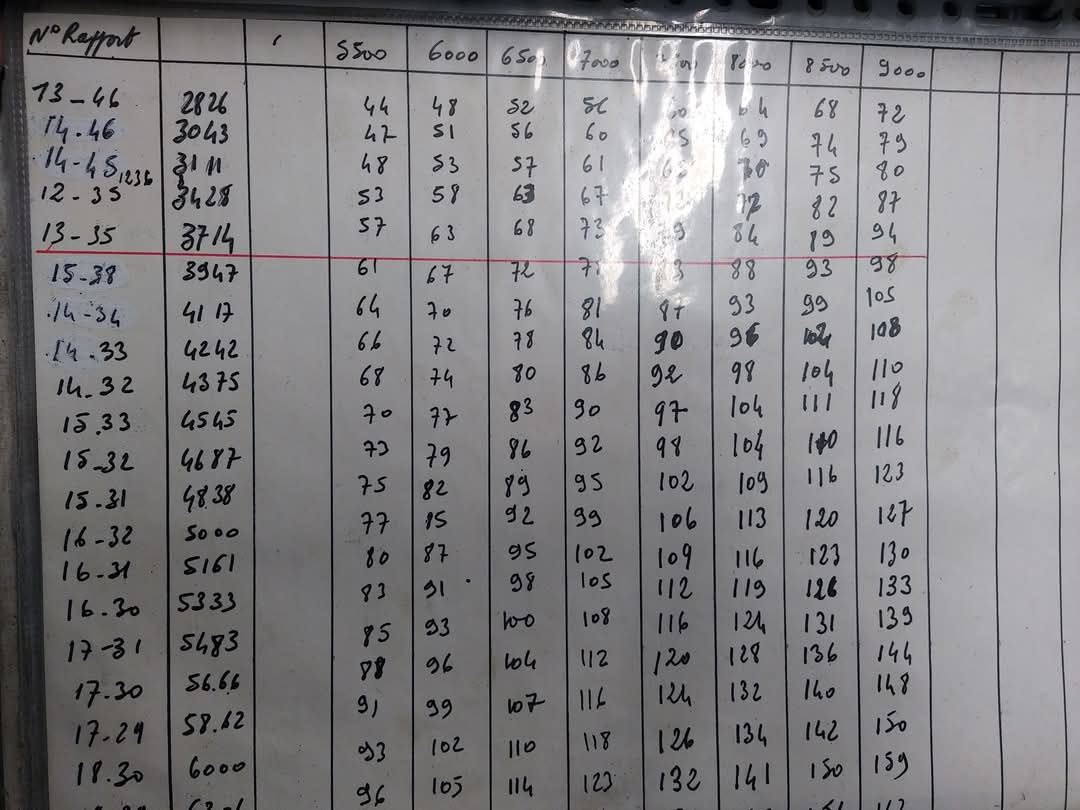 N° Rapport 5500 6000 6500 7000 8000 8500 9000
13-46 2826 44 48 52 56 60 64 68 72
14.46 3043 47 51 56 60 65 69 74 79
14-45 3111 48 53 57 61 70 75 80
1236
12-35 3428 53 58 63 67 77 82 87
13-35 3714 57 63 68 73 84 89 94
15-38 3947 61 67 72 78 83 88 93 98
14-34 4117 64 70 76 81 87 93 99 105
14.33 4242 66 72 78 84 90 96 102 108
14.32 4375 68 74 80 86 92 98 104 110
15.33 4545 70 77 83 90 97 104 111 118
15-32 4687 73 79 86 92 98 104 110 116
15-31 4838 75 82 89 95 102 109 116 123
16-32 5000 77 85 92 99 106 113 120 127
16-31 5161 80 87 95 102 109 116 123 130
16.30 5333 83 91 98 105 112 119 126 133
17-31 5483 85 93 100 108 116 124 131 139
17.30 56.66 88 96 104 112 120 128 136 144
17.29 58.62 91 99 107 116 124 132 140 148
18.30 6000 93 102 110 118 126 134 142 150
96 105 114 123 132 141 150 159